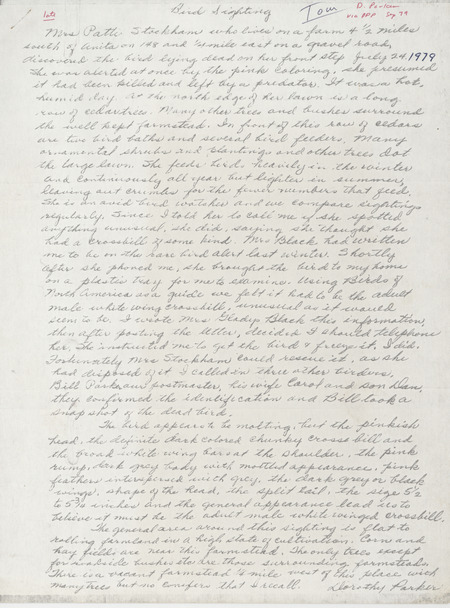 Bird Sighting
Iowa
D. Parker
via APP Sep 79
Mrs Patti Stockham who lives on a farm 4 1/2 miles
south of Anita on 148 and 1/4 mile east on a gravel road,
discovered the bird lying dead on her front step July 24, 1979
She was alerted at once by the pink coloring, she presumed
it had been killed and left by a predator. It was a hot,
humid day. At the north edge of her lawn is a long
row of cedar trees. Many other trees and bushes surround
the well kept farmstead. In front of this row of cedars
are two bird baths and several bird feeders. Many
ornamental shrubs and plantings and other trees dot
the large lawn. She feeds birds heavily in the winter
and continuously all year but lighter in summer,
leaving out crumbs for the fewer numbers that feed.
She is an avid bird watcher and we compare sightings
regularly. Since I told her to call me if she spotted
anything unusual, she did, saying she thought she
had a crossbill of some kind. Mrs Black had written
me to be on the rare bird alert last winter. Shortly
after she phoned me, she brought the bird to my home
on a plastic tray for me to examine. Using Birds of
North America as a guide we felt it had to be the adult
male white wing crossbill, unusual as it would
seem to be. I wrote Mrs. Gladys Black the information,
then after posting the letter, decided I should telephone
her. She instructed me to get the bird & freeze it. I did.
Fortunately Mrs Stockham could rescue it, as she
had disposed of it. I called in three other birders,
Bill Parker our postmaster, his wife Carol and son Dan,
they confirmed the identification and Bill took a
snap shot of the dead bird.
The bird appears to be molting, but the pinkish
head, the definite dark colored chunky crosse bill and
the broad white wing bars at the shoulder, the pink
rump, dark grey body with mottled appearance, pink
feathers interspersed with grey, the dark grey or black
wings, shape of the head, the split tail, the size 5 1/2
to 5 3/4 inches and the general appearance lead us to
believe it must be the adult male white winged crossbill.
The general area around this sighting is flat to
rolling farmland in a high state of cultivation. Corn and
hay fields are near this farmstead. The only trees except
for roadside bushes etc are those surrounding farmsteads.
There is a vacant farmstead 1/2 mile west of this place with
many trees but no conifers that I recall.
Dorothy Parker